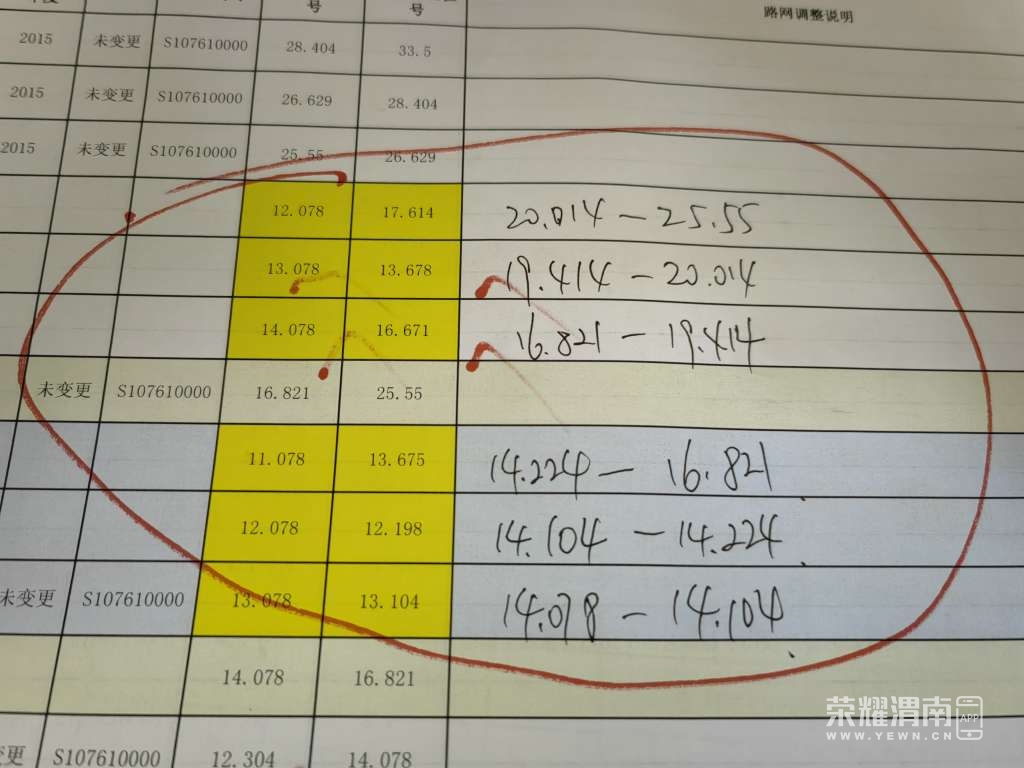 号 号 路网调整说明
2015 未变更 S107610000 28.404 33.5
2015 未变更 S107610000 26.629 28.404
2015 未变更 S107610000 25.55 26.629
12.078 17.614 20.014-25.55
13.078 13.678 19.414-20.014
14.078 16.671 16.821-19.414
未变更 S107610000 16.821 25.55
11.078 13.675 14.224-16.821
12.078 12.198 14.104-14.224
未变更 S107610000 13.078 13.104 14.078-14.104
14.078 16.821
变更 S107610000 12.304 14.078
荣耀渭南 APP
WWW.YEWN.CN